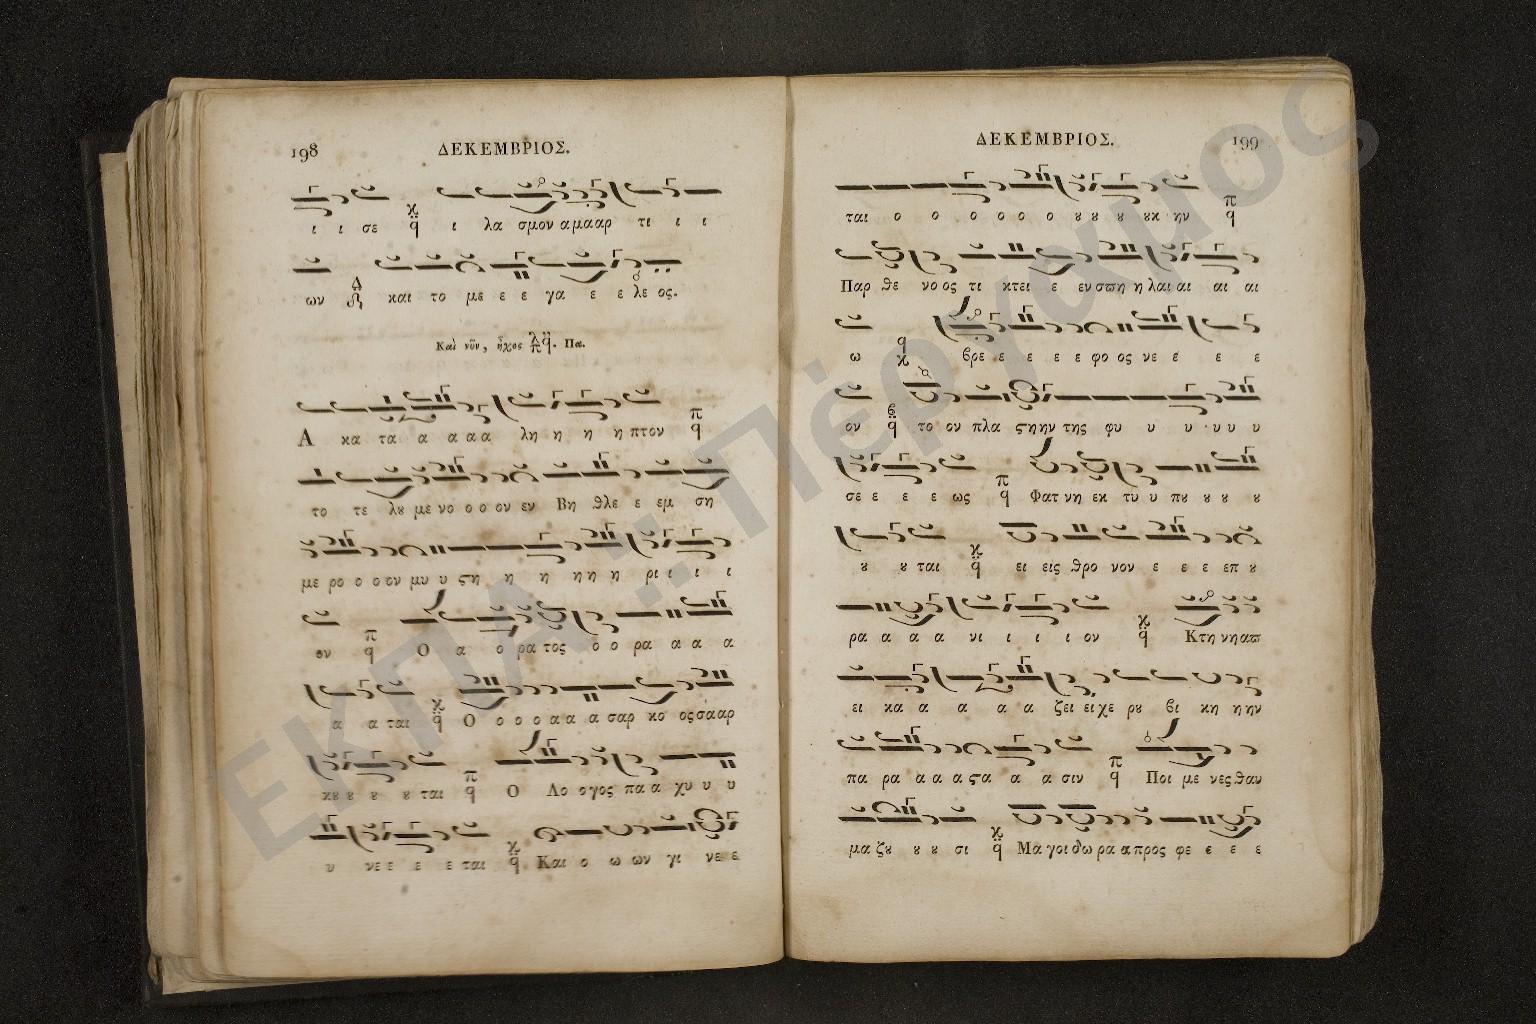 198 ΔΕΚΕΜΒΡΙΟΣ.
ι ι σε ι λα σμον α μααρ τι ι ι
ων και το με ε ε γα ε ε λε ος.
Καὶ νῦν, ἦχος Πα.
Α κα τα α α α α λη η η η πτον π q
το τε λȣ με νο ο ο ον εν Βη θλε ε εμ ση
με ρο ο ο ον μυ υ ϛη η η η η η ρι ι ι ι
ον π q Ο α ο ρα τος ο ο ρα α α α
α α ται Ο ο ο ο α α α σαρ κο ος σαρ
κȣ ȣ ȣ ȣ ται π q Ο Λο ο γος πα α χυ υ υ
υ νε ε ε ε ται Και ο ω ων γι νε ε
ΔΕΚΕΜΒΡΙΟΣ. 199
ται ο ο ο ο ο ο ȣ ȣ ȣ ȣκ ην π q
Παρ θε νο ος τι κτει ε εν σπη η λαι αι αι αι
ω βρε ε ε ε ε ε φο ος νε ε ε ε
ον το ον πλα ϛη ην της φυ υ υ υ υ υ
σε ε ε ε ως π q Φατ νη εκ τυ υ πȣ ȣ ȣ ȣ
ȣ ȣ ται ει εις θρο νον ε ε ε επ ȣ
ρα α α α νι ι ι ι ον Κτη νη απ
ει κα α α α α ζει ει χε ρȣ βι κη η ην
πα ρα α α α ϛα α α σιν π q Ποι με νες θαυ
μα ζȣ ȣ ȣ σι Μα γοι δω ρα α προς φε ε ε ε
ΕΚΠΑ :: Πέργαμος